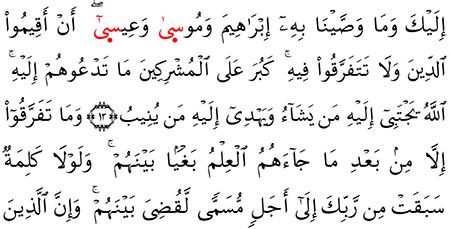 إِلَيْكَ وَمَا وَصَّيْنَا بِهِۦٓ إِبْرَٰهِيمَ وَمُوسَىٰ وَعِيسَىٰٓ ۖ أَنْ أَقِيمُوا۟
ٱلدِّينَ وَلَا تَتَفَرَّقُوا۟ فِيهِ ۚ كَبُرَ عَلَى ٱلْمُشْرِكِينَ مَا تَدْعُوهُمْ إِلَيْهِ ۚ
ٱللَّهُ يَجْتَبِىٓ إِلَيْهِ مَن يَشَآءُ وَيَهْدِىٓ إِلَيْهِ مَن يُنِيبُ ﴿١٣﴾ وَمَا تَفَرَّقُوٓا۟
إِلَّا مِنۢ بَعْدِ مَا جَآءَهُمُ ٱلْعِلْمُ بَغْيًۢا بَيْنَهُمْ ۚ وَلَوْلَا كَلِمَةٌ
سَبَقَتْ مِن رَّبِّكَ إِلَىٰٓ أَجَلٍ مُّسَمًّى لَّقُضِىَ بَيْنَهُمْ ۚ وَإِنَّ ٱلَّذِينَ